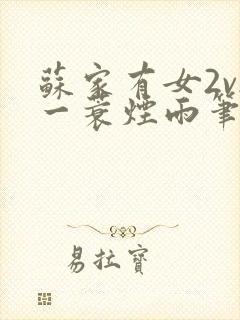 蘇家有女2v
一蓑煙雨筆
易拉寶